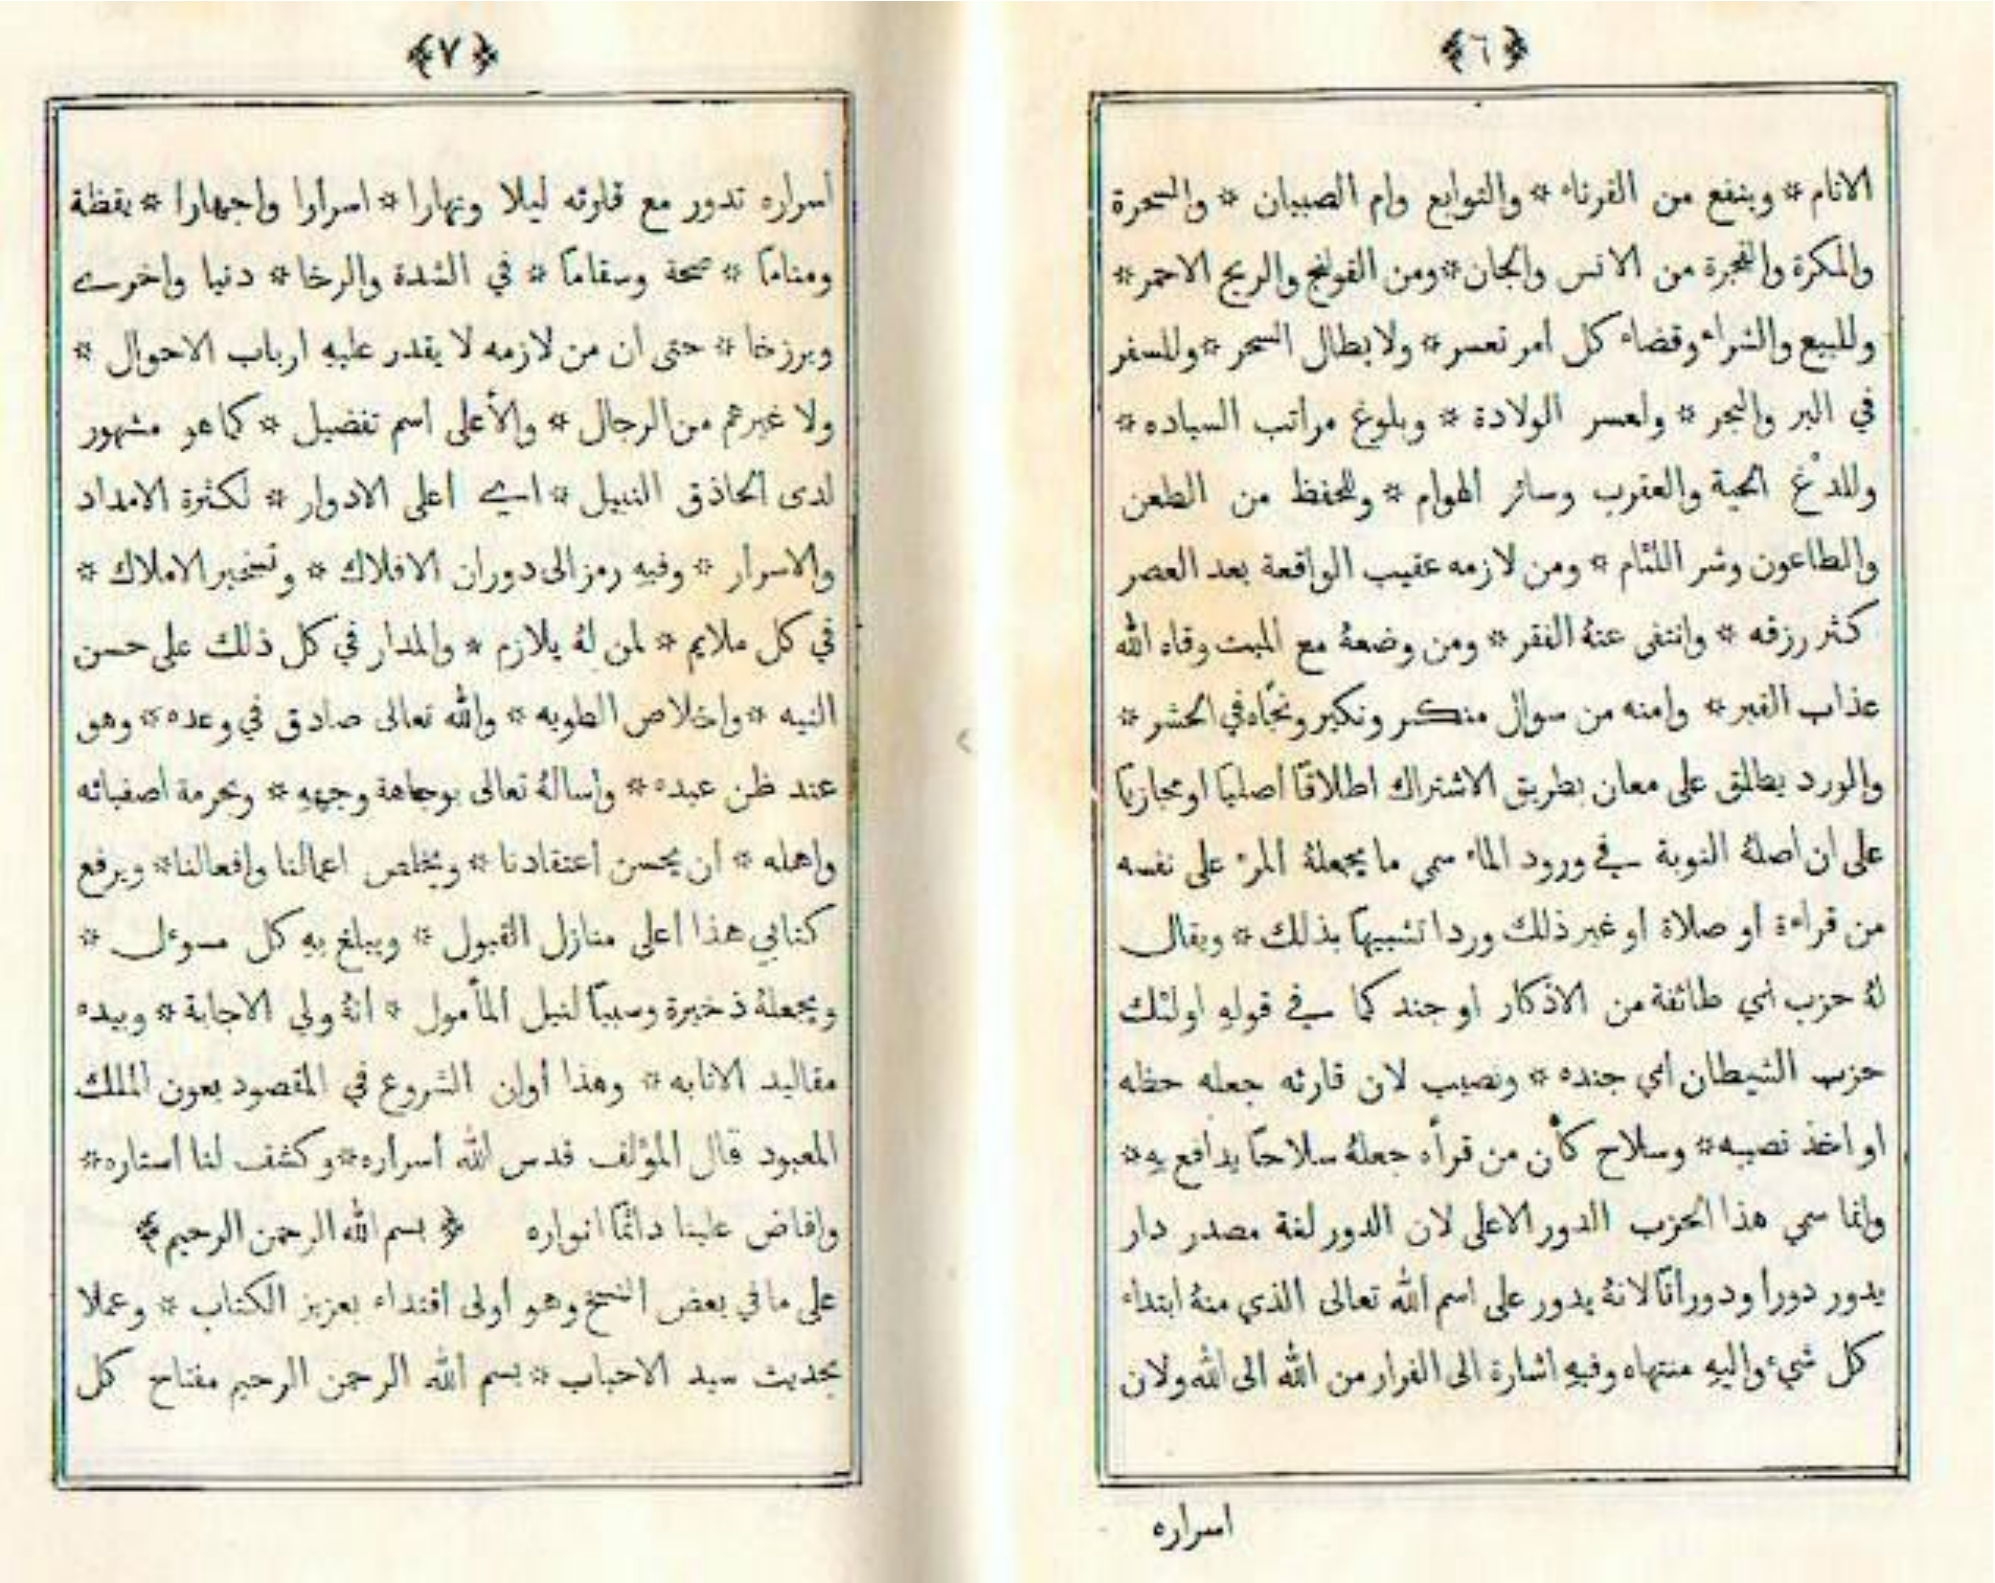 ﴿٦﴾
الانام * وينفع من القرناء * والتوابع وام الصبيان * والسحرة
والمكرة والفجرة من الانس والجان * ومن القولنج والريح الاحمر *
وللبيع والشراء وقضاء كل امر تعسر * ولابطال السحر * وللسفر
في البر والبحر * ولعسر الولادة * وبلوغ مراتب السياده *
وللدغ الحية والعقرب وسائر الهوام * وللحفظ من الطعن
والطاعون وشر اللئام * ومن لازمه عقيب الواقعة بعد العصر
كثر رزقه * وانتفى عنهُ الفقر * ومن وضعهُ مع الميت وقاه الله
عذاب القبر * وامنه من سوال منكر ونكير ونجّاه في الحشر *
والورد يطلق على معان بطريق الاشتراك اطلاقًا اصليًا او مجازيًا
على ان اصلهُ النوبة في ورود الماء سمي ما يجعلهُ المرء على نفسه
من قراءة او صلاة او غير ذلك وردا تشبيهًا بذلك * ويقال
لهُ حزب اي طائفة من الاذكار او جند كما في قولهِ اولئك
حزب الشيطان اي جنده * ونصيب لان قارئه جعله حظه
او اخذ نصيبه * وسلاح كأن من قرأه جعلهُ سلاحًا يدافع بهِ *
وانما سمي هذا الحزب الدور الاعلى لان الدور لغة مصدر دار
يدور دورا ودورانًا لانهُ يدور على اسم الله تعالى الذي منهُ ابتداء
كل شيء واليهِ منتهاه وفيهِ اشارة الى الفرار من الله الى الله ولان
اسراره
﴿٧﴾
اسراره تدور مع قارئه ليلا ونهارا * اسرارا واجهارا * يقظة
ومنامًا * صحة وسقامًا * في الشدة والرخا * دنيا واخرى
وبرزخا * حتى ان من لازمه لا يقدر عليهِ ارباب الاحوال *
ولا غيرهم من الرجال * والأعلى اسم تفضيل * كما هو مشهور
لدى الحاذق النبيل * اي اعلى الادوار * لكثرة الامداد
والاسرار * وفيهِ رمز الى دوران الافلاك * وتسخير الاملاك *
في كل ملايم * لمن لهُ يلازم * والمدار في كل ذلك على حسن
النيه * واخلاص الطويه * والله تعالى صادق في وعده * وهو
عند ظن عبده * واسالهُ تعالى بوجاهة وجههِ * وبحرمة اصفيائه
واهله * ان يحسن اعتقادنا * ويخلص اعمالنا وافعالنا * ويرفع
كتابي هذا اعلى منازل القبول * ويبلغ بهِ كل مسوءل *
ويجعلهُ ذخيرة وسببًا لنيل المأمول * انهُ ولي الاجابة * وبيده
مقاليد الانابه * وهذا اوان الشروع في المقصود بعون الملك
المعبود قال المؤلف قدس الله اسراره * وكشف لنا استاره *
وافاض علينا دائمًا انواره ﴿ بسم الله الرحمن الرحيم ﴾
على ما في بعض النسخ وهو اولى اقتداء بعزيز الكتاب * وعملا
بحديث سيد الاحباب * بسم الله الرحمن الرحيم مفتاح كل